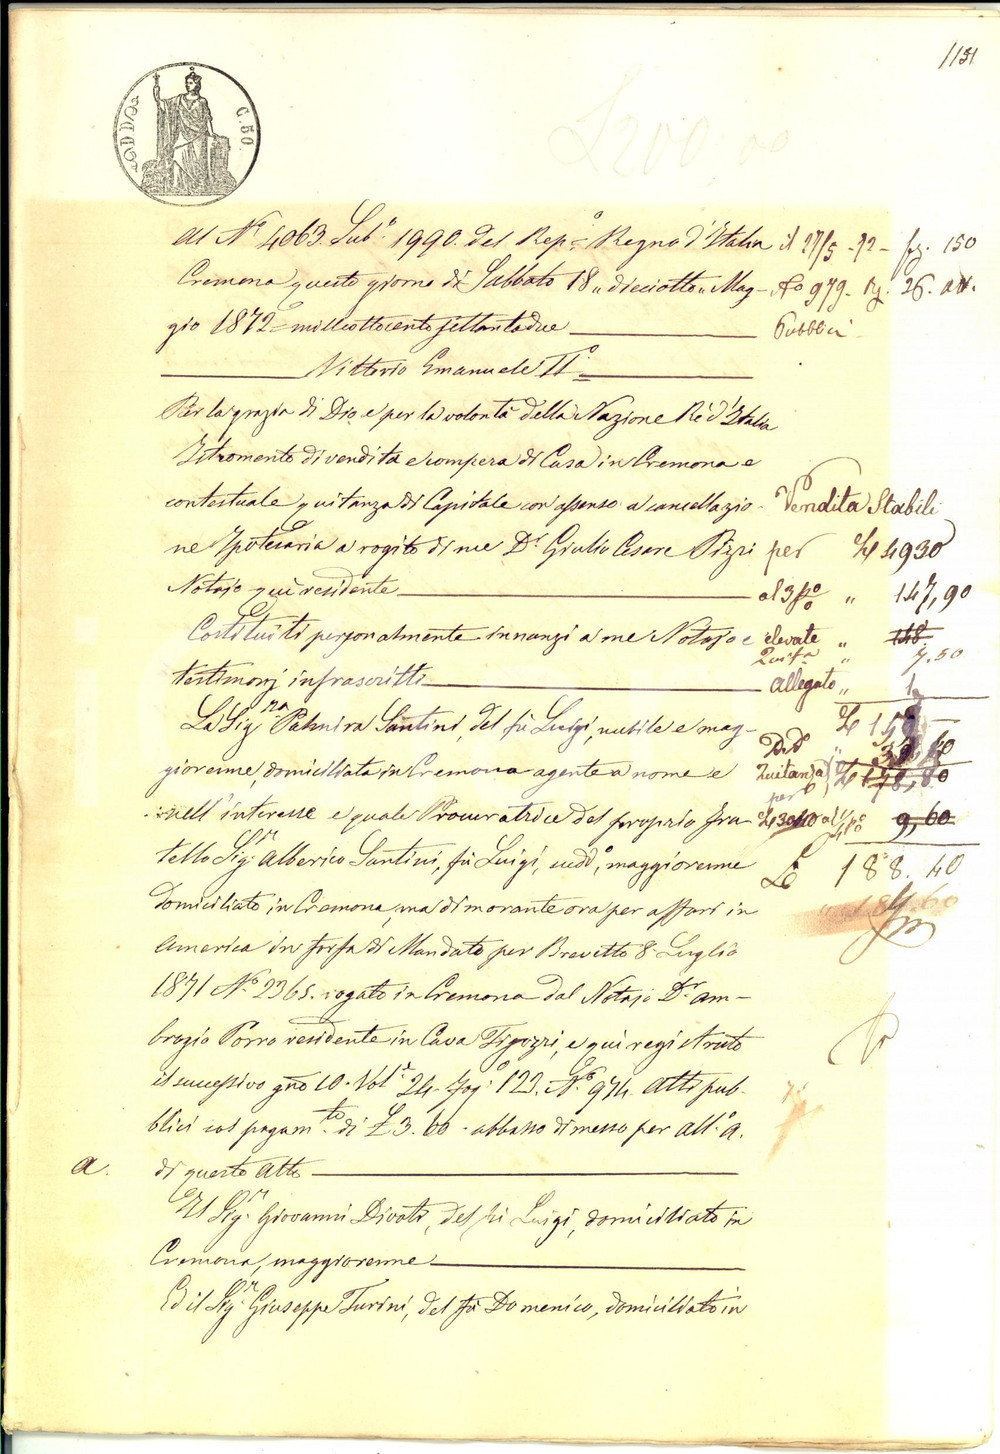 1151
C. 50.
£200.00
Al N.º 4063. Sub.º 1990. del Rep.º Regno d'Italia
Cremona questo giorno di Sabbato 18 „ dieciotto „ Mag-
gio 1872 = milleottocento settantadue
Vittorio Emanuele IIº
Per la grazia di Dio e per la volontà della Nazione Re d'Italia
Istromento di vendita e compera di Casa in Cremona e
contestuale quitanza di Capitale con assenso a cancellazio-
ne Ipotecaria a rogito di me D.r Giulio Cesare Pizzi
Notajo quì residente
Costituiti personalmente innanzi a me Notajo e
testimonj infrascritti
La Sig.ra Palmira Santini, del fù Luigi, nubile e mag-
giorenne, domiciliata in Cremona agente a nome e
nell'interesse e quale Procuratrice del proprio fra-
tello Sig.r Alberico Santini, fù Luigi, sudd.º, maggiorenne
domiciliato in Cremona, ma dimorante ora per affari in
America in forza di Mandato per Brevetto 8 Luglio
1871 N.º 2365. rogato in Cremona dal Notajo D.r Am-
brogio Porro residente in Cava Tigozzi, e qui registrato
il successivo gno 10. Vol.e 24. Fog.º 123. N.º 974. Atti pub-
blici col pagam.to di £ 3. 60. abbasso dimesso per all.º A.
a.
di questo Atto
Il Sig.r Giovanni Divoti, del fù Luigi, domiciliato in
Cremona, maggiorenne
Ed il Sig.r Giuseppe Turini, del fù Domenico, domiciliato in
il 27/5 - 72 - fog. 150
No 979. Vol. 26. att.
Pubblici
Vendita Stabili
per £ 4930
al 3 p% „ 147,90
elevate „ 148.
Quit.a „ 7.50
Allegato „ 1
£
Quitanza
per
9,60
£ 188. 40